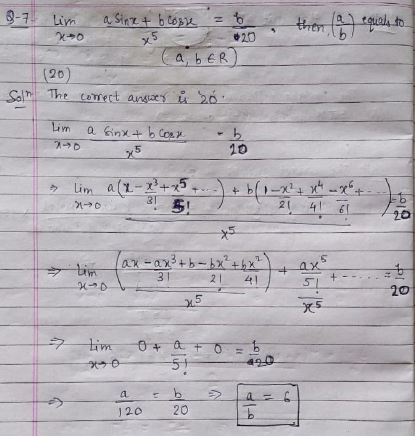 Q-7 Lim x→0 a sinx + b cosx / x^5 = b/120, then, (a/b) equals to
(a, b ∈ R)
(20)
Sol^n The correct answer is '20'.
Lim x→0 a sinx + b cosx / x^5 = b/20
⇒ Lim x→0 a(x - x^3/3! + x^5/5! ....) + b(1 - x^2/2! + x^4/4! - x^6/6! + ....) / x^5 = b/20
⇒ Lim x→0 (ax - ax^3/3! + b - bx^2/2! + bx^2/4!) / x^5 + ax^5/5! / x^5 + ...... = b/20
⇒ Lim x→0 0 + a/5! + 0 = b/120
⇒ a/120 = b/20 ⇒ a/b = 6